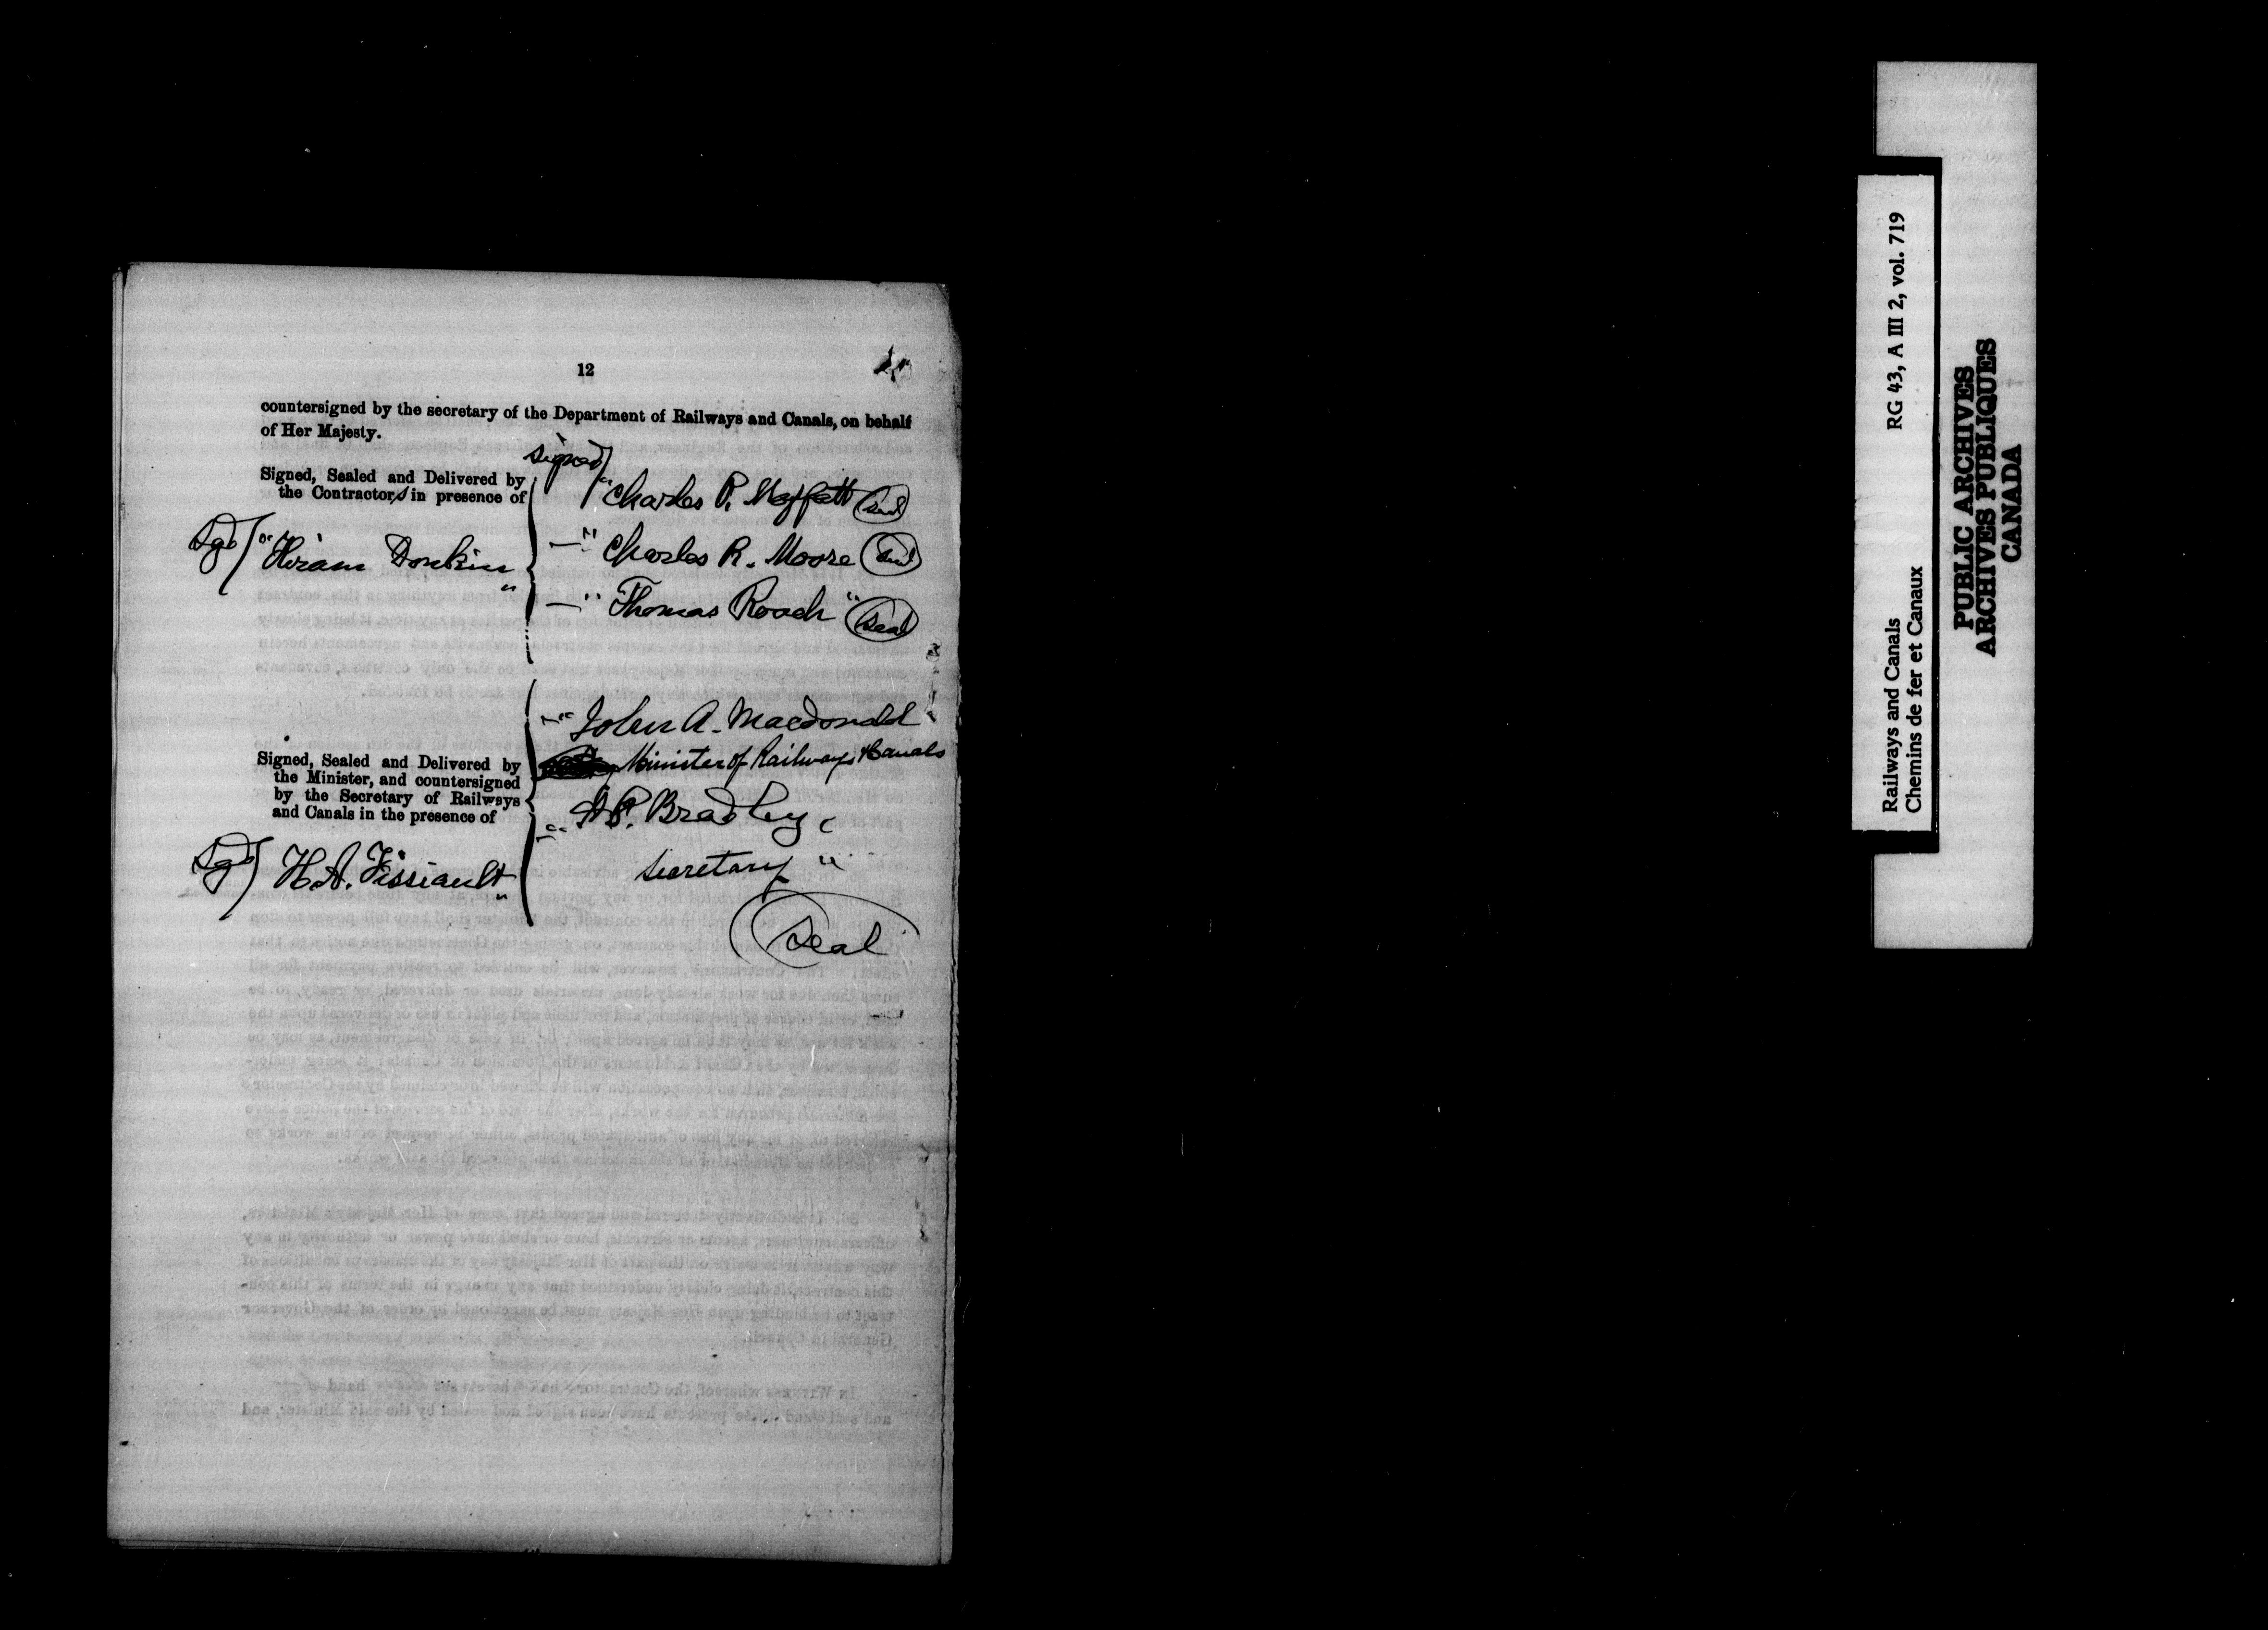 12
countersigned by the secretary of the Department of Railways and Canals, on behalf
of Her Majesty.
signed)
Signed, Sealed and Delivered by
the Contractors in presence of
"Charles P. Moffatt (seal)
Sgd) "Hiram Donkin"
—" Charles R. Moore (seal)
—" Thomas Roach" (seal)
—" John A. Macdonald
Minister of Railways & Canals
Signed, Sealed and Delivered by
the Minister, and countersigned
by the Secretary of Railways
and Canals in the presence of
—" A.P. Bradley
Secretary "
Sgd) H.A. Fissiault"
Seal
Railways and Canals RG 43, A III 2, vol. 719
Chemins de fer et Canaux
PUBLIC ARCHIVES
ARCHIVES PUBLIQUES
CANADA